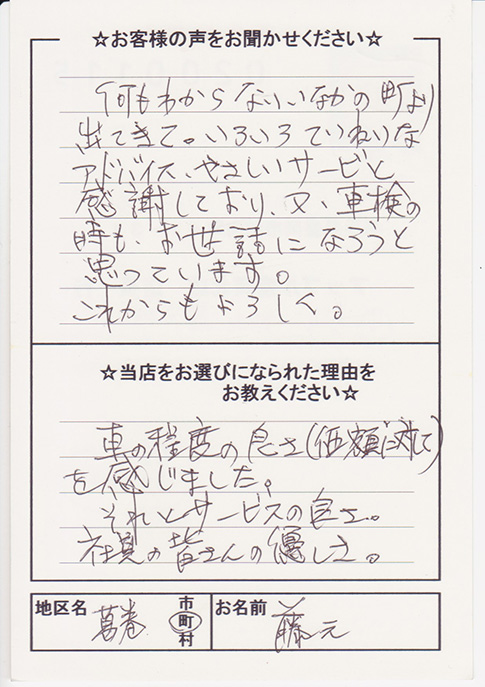 ☆お客様の声をお聞かせください☆
何もわからないいなかの町より
出てきて。いろいろていねいな
アドバイス、やさしいサービと
感謝しており、又、車検の
時も、お世話になろうと
思っています。
これからもよろしく。
☆当店をお選びになられた理由を
お教えください☆
車の程度の良さ(価額に対して)
を感じました。
それとサービスの良さ。
社員の皆さんの優しさ。
地区名 葛巻 市町村 お名前 藤元